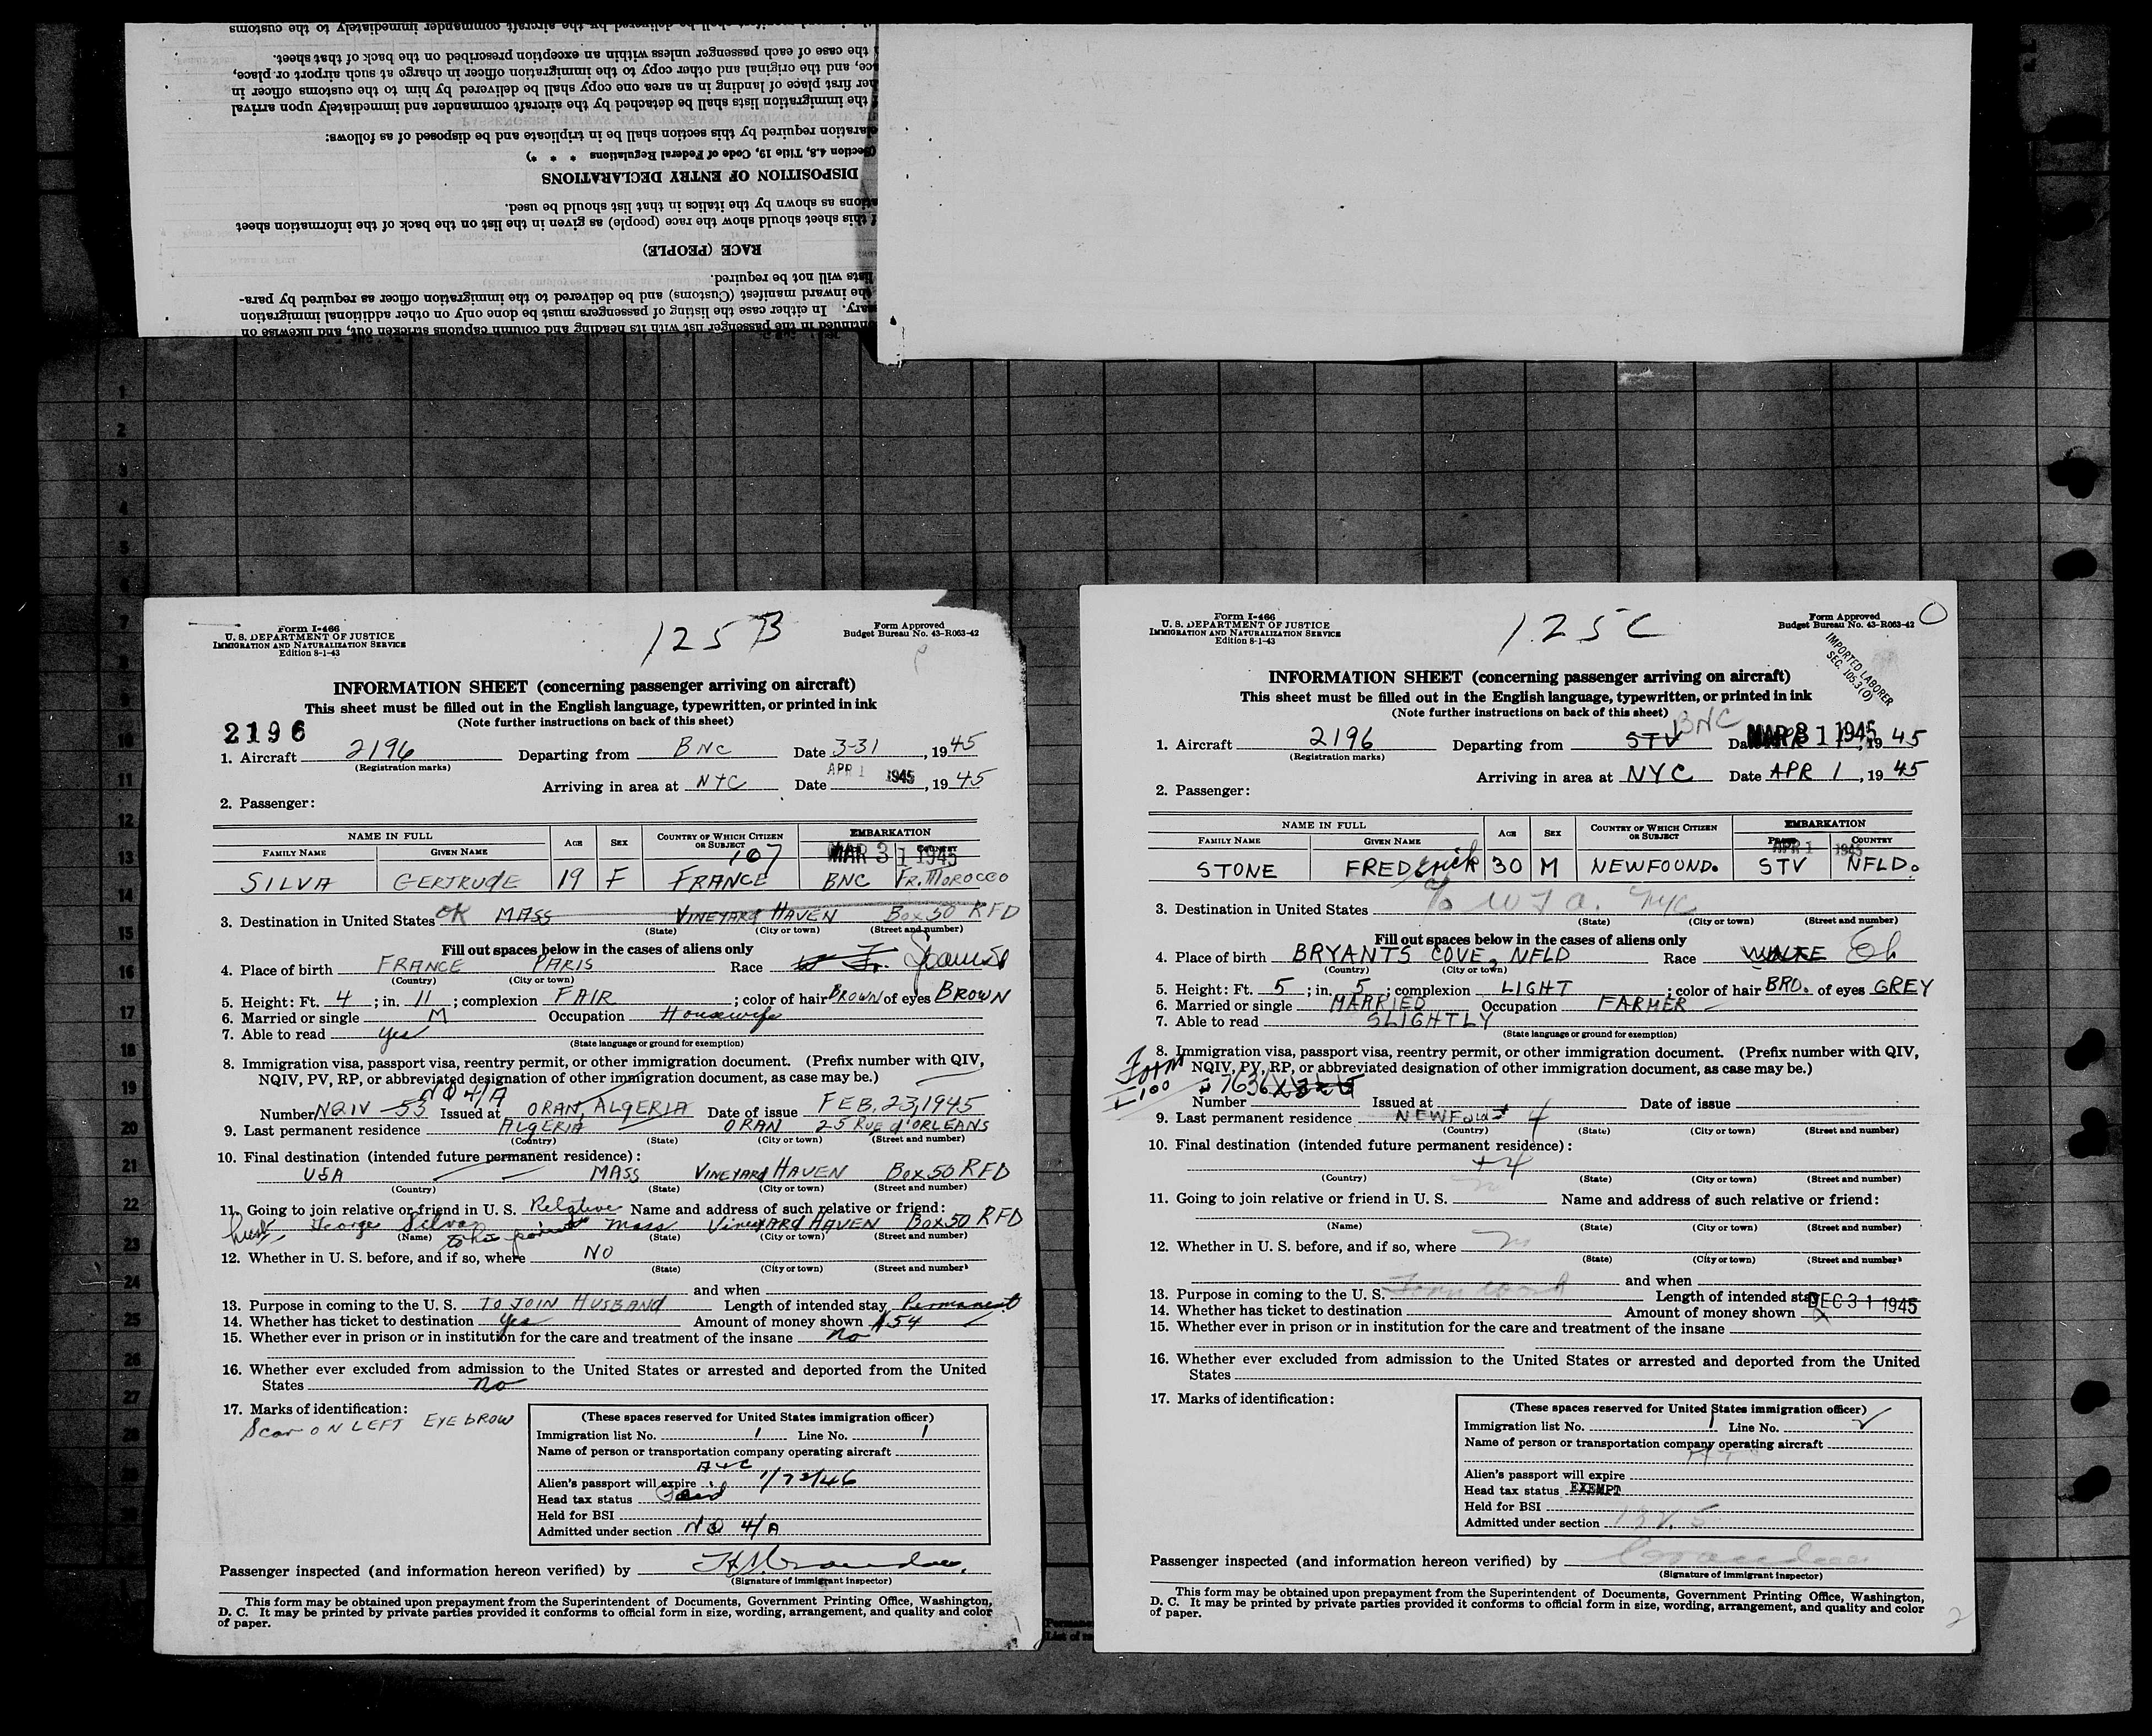 and manifest shall be delivered by the aircraft commander immediately to the customs
the case of each passenger unless within an exception prescribed on the back of that sheet.
ace, and the original and other copy to the immigration officer in charge at such airport or place,
her first place of landing in an area one copy shall be delivered by him to the customs officer in
the immigration lists shall be detached by the aircraft commander and immediately upon arrival
laration required by this section shall be in triplicate and be disposed of as follows:
(Section 4.8, Title 19, Code of Federal Regulations * * *)
DISPOSITION OF ENTRY DECLARATIONS
ations as shown by the italics in that list should be used.
f this sheet should show the race (people) as given in the list on the back of the information sheet
RACE (PEOPLE)
lists will not be required.
the inward manifest (Customs) and be delivered to the immigration officer as required by para-
ary. In either case the listing of passengers must be done only on other additional immigration
ntinued in the passenger list with its heading and column captions stricken out, and likewise on
125 B
Form I-466
U. S. DEPARTMENT OF JUSTICE
IMMIGRATION AND NATURALIZATION SERVICE
Edition 8-1-43
Form Approved
Budget Bureau No. 43-R063-42
INFORMATION SHEET (concerning passenger arriving on aircraft)
This sheet must be filled out in the English language, typewritten, or printed in ink
(Note further instructions on back of this sheet)
2196
1. Aircraft 2196 Departing from BNC Date 3-31, 1945
(Registration marks)
Arriving in area at NYC Date APR 1 1945, 1945
2. Passenger:
NAME IN FULL AGE SEX COUNTRY OF WHICH CITIZEN OR SUBJECT EMBARKATION
FAMILY NAME GIVEN NAME 107 MAR 31 1945 COUNTRY
SILVA GERTRUDE 19 F FRANCE BNC FR. MOROCCO
3. Destination in United States OK MASS VINEYARD HAVEN Box 50 RFD
(State) (City or town) (Street and number)
Fill out spaces below in the cases of aliens only
4. Place of birth FRANCE PARIS Race Fr. Spanish
(Country) (City or town)
5. Height: Ft. 4; in. 11; complexion FAIR; color of hair BROWN of eyes BROWN
6. Married or single M Occupation Housewife
7. Able to read Yes
(State language or ground for exemption)
8. Immigration visa, passport visa, reentry permit, or other immigration document. (Prefix number with QIV,
NQIV, PV, RP, or abbreviated designation of other immigration document, as case may be.)
NQ 4/A
Number NQIV-55 Issued at ORAN, ALGERIA Date of issue FEB. 23, 1945
9. Last permanent residence ALGERIA ORAN 25 RUE d'ORLEANS
(Country) (State) (City or town) (Street and number)
10. Final destination (intended future permanent residence):
USA MASS VINEYARD HAVEN Box 50 RFD
(Country) (State) (City or town) (Street and number)
11. Going to join relative or friend in U. S. Relative Name and address of such relative or friend:
husb George Silva Mass VINEYARD HAVEN Box 50 RFD
(Name) to his parents (State) (City or town) (Street and number)
12. Whether in U. S. before, and if so, where NO
(State) (City or town) (Street and number)
and when
13. Purpose in coming to the U. S. TO JOIN HUSBAND Length of intended stay Permanent
14. Whether has ticket to destination Yes Amount of money shown $54
15. Whether ever in prison or in institution for the care and treatment of the insane No
16. Whether ever excluded from admission to the United States or arrested and deported from the United
States No
17. Marks of identification:
Scar ON LEFT EYE BROW
(These spaces reserved for United States immigration officer)
Immigration list No. 1 Line No. 1
Name of person or transportation company operating aircraft
Alien's passport will expire
Head tax status Paid
Held for BSI
Admitted under section NQ 4/A
Passenger inspected (and information hereon verified) by
(Signature of immigrant inspector)
This form may be obtained upon prepayment from the Superintendent of Documents, Government Printing Office, Washington,
D. C. It may be printed by private parties provided it conforms to official form in size, wording, arrangement, and quality and color
of paper.
125 C
Form I-466
U. S. DEPARTMENT OF JUSTICE
IMMIGRATION AND NATURALIZATION SERVICE
Edition 8-1-43
Form Approved
Budget Bureau No. 43-R063-42
IMPORTED LABORER
SEC. 105.3(O)
INFORMATION SHEET (concerning passenger arriving on aircraft)
This sheet must be filled out in the English language, typewritten, or printed in ink
(Note further instructions on back of this sheet)
BNC
1. Aircraft 2196 Departing from STV Date MAR 31 1945, 1945
(Registration marks)
Arriving in area at NYC Date APR 1, 1945
2. Passenger:
NAME IN FULL AGE SEX COUNTRY OF WHICH CITIZEN OR SUBJECT EMBARKATION
FAMILY NAME GIVEN NAME APR 1 1945 COUNTRY
STONE FREDErick 30 M NEWFOUND. STV NFLD.
3. Destination in United States NYC
(State) (City or town) (Street and number)
Fill out spaces below in the cases of aliens only
4. Place of birth BRYANTS COVE, NFLD Race WHITE
(Country) (City or town)
5. Height: Ft. 5; in. 5; complexion LIGHT; color of hair BRO. of eyes GREY
6. Married or single MARRIED Occupation FARMER
7. Able to read SLIGHTLY
(State language or ground for exemption)
8. Immigration visa, passport visa, reentry permit, or other immigration document. (Prefix number with QIV,
NQIV, PV, RP, or abbreviated designation of other immigration document, as case may be.)
Form I-100
Number Issued at Date of issue
9. Last permanent residence NEWFOUND
(Country) (State) (City or town) (Street and number)
10. Final destination (intended future permanent residence):
(Country) (State) (City or town) (Street and number)
11. Going to join relative or friend in U. S. no Name and address of such relative or friend:
(Name) (State) (City or town) (Street and number)
12. Whether in U. S. before, and if so, where no
(State) (City or town) (Street and number)
and when
13. Purpose in coming to the U. S. Farm work Length of intended stay DEC 31 1945
14. Whether has ticket to destination Amount of money shown
15. Whether ever in prison or in institution for the care and treatment of the insane
16. Whether ever excluded from admission to the United States or arrested and deported from the United
States
17. Marks of identification:
(These spaces reserved for United States immigration officer)
Immigration list No. 1 Line No. 2
Name of person or transportation company operating aircraft
Alien's passport will expire
Head tax status EXEMPT
Held for BSI
Admitted under section
Passenger inspected (and information hereon verified) by
(Signature of immigrant inspector)
This form may be obtained upon prepayment from the Superintendent of Documents, Government Printing Office, Washington,
D. C. It may be printed by private parties provided it conforms to official form in size, wording, arrangement, and quality and color
of paper.
2